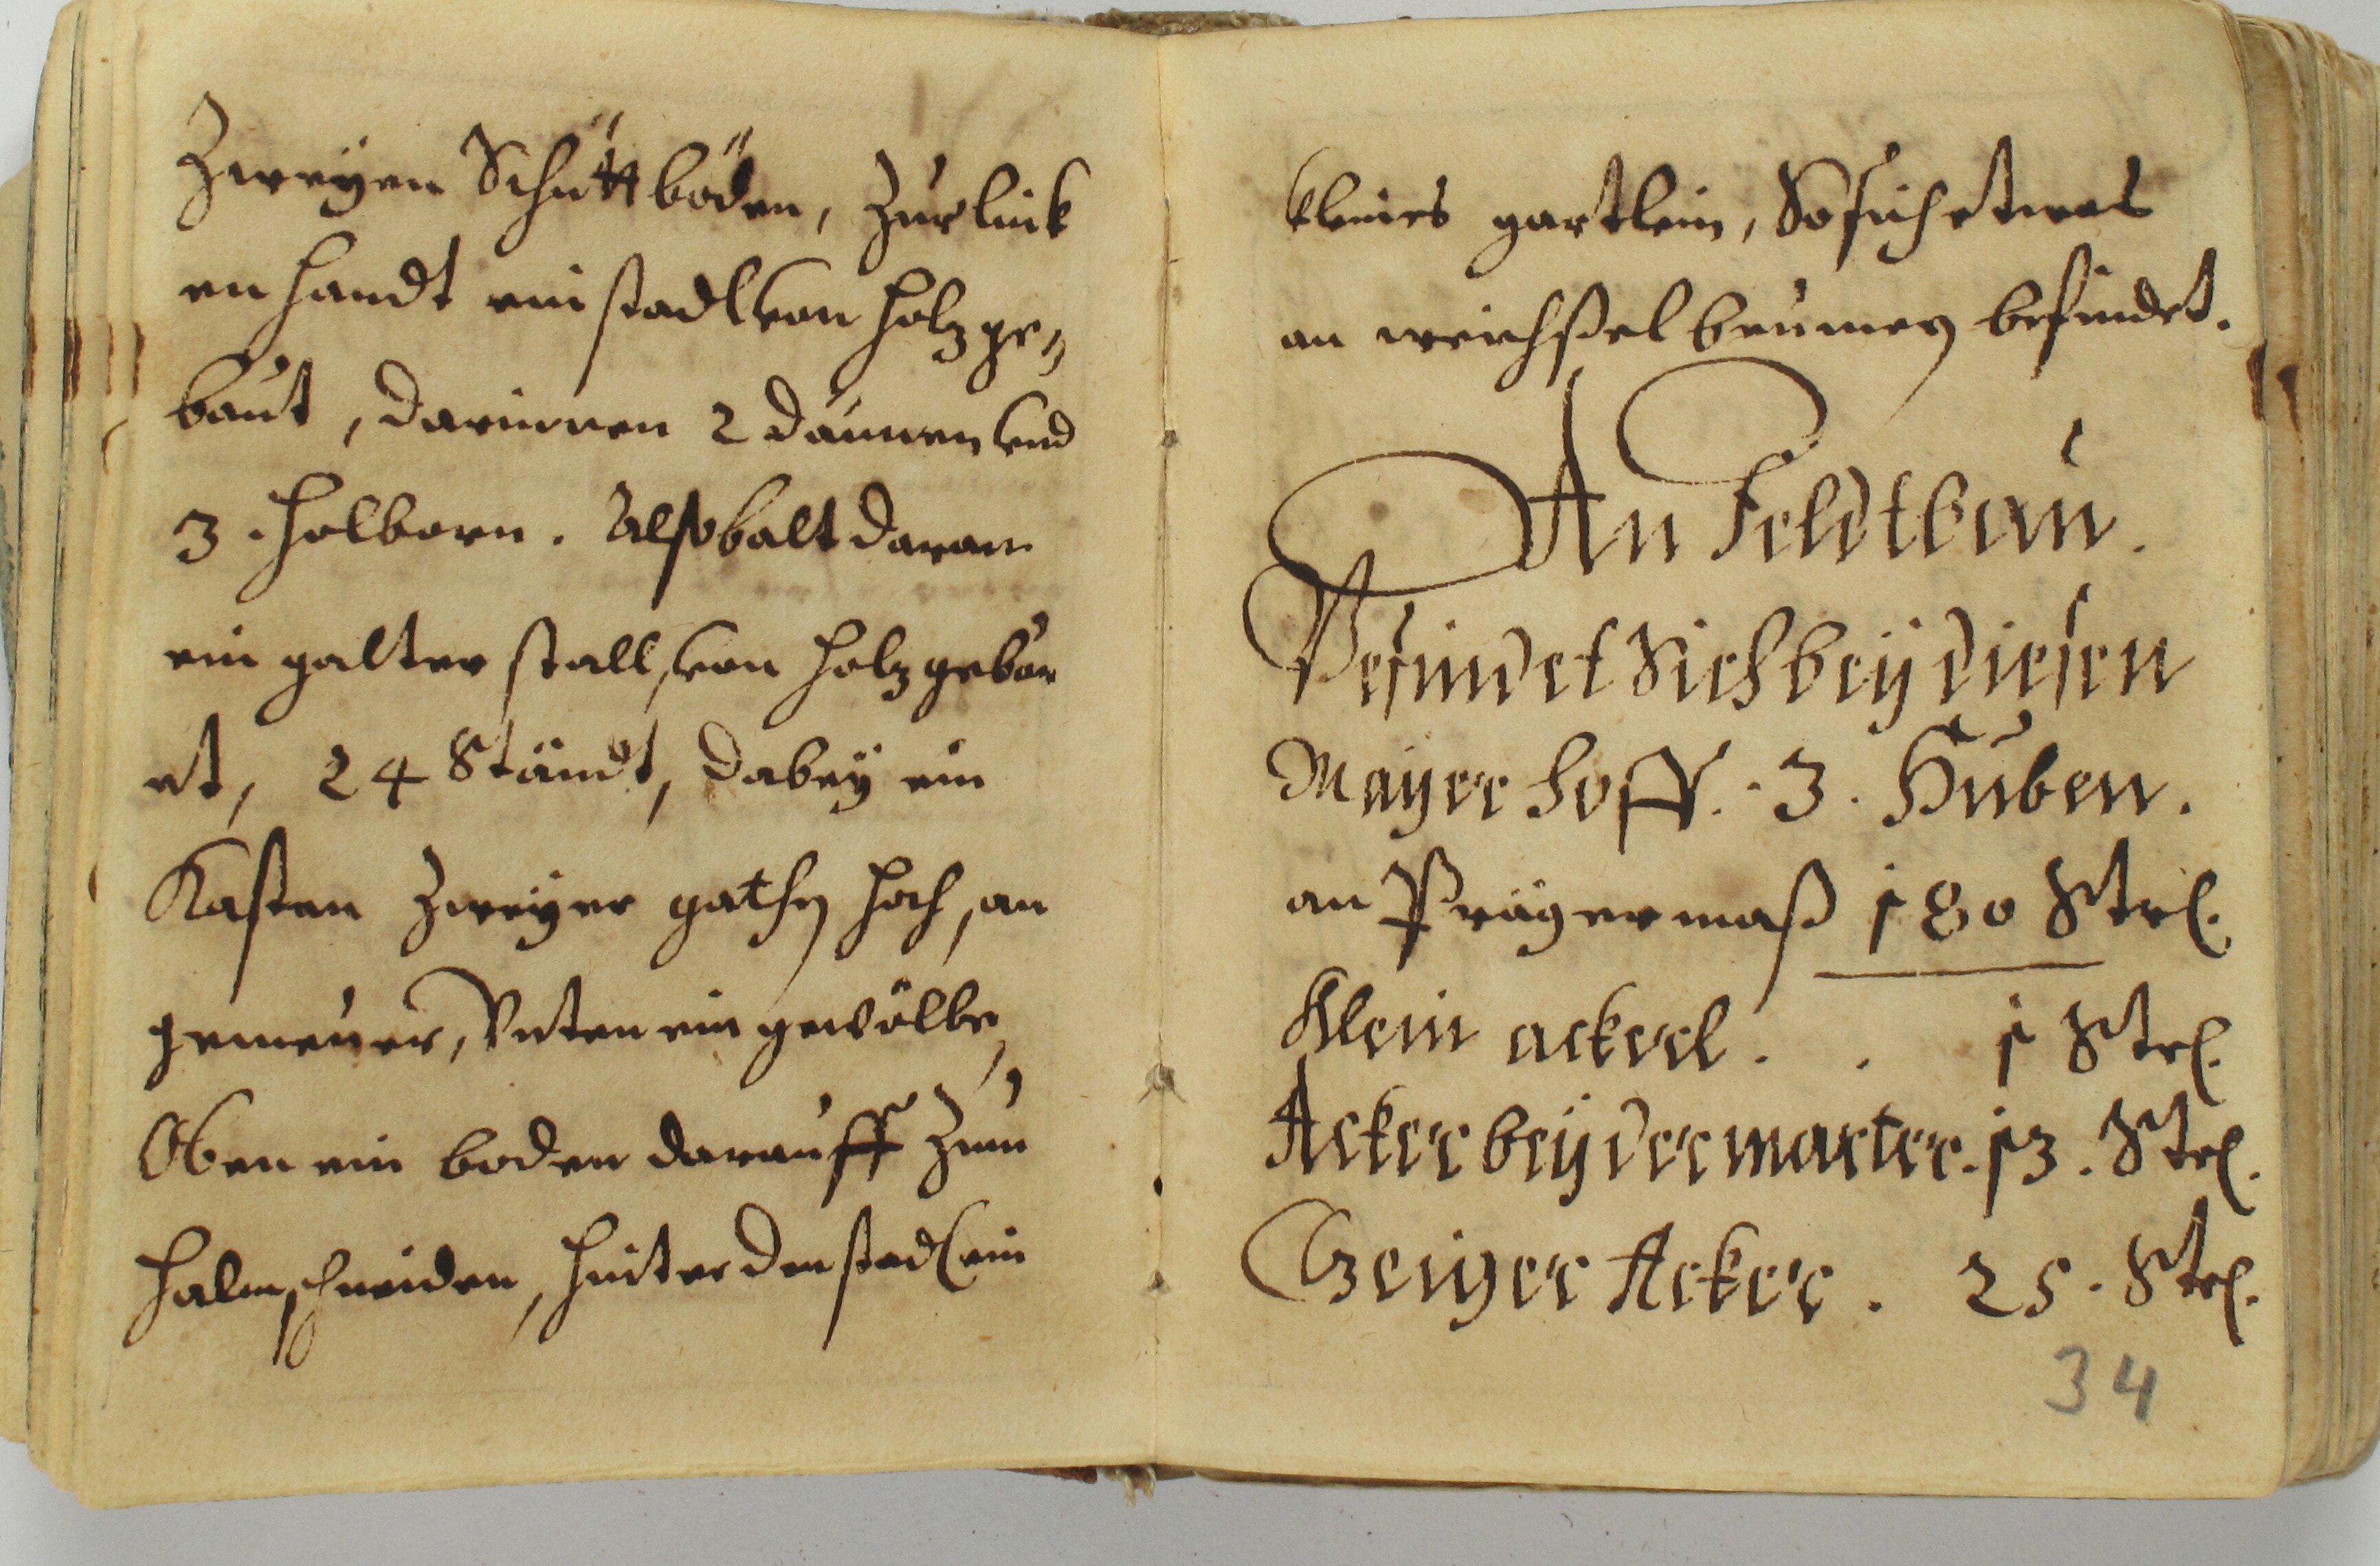 Zweyen Schüttböden, Zur link
en handt ein stadl von holz ge„
baut, darinnen 2 dännen vnd
3. holbarn. Alsobalt daran
ein galter stall, von holz gebau
et, 24 Ständt, dabey ein
Kasten Zweyer gathen hoch, an
gemeüer, Vnten ein gewölbe,
Oben ein boden darauff Zum
halmschneiden, hinter den stadl ein
kleines gartlein, So sich etwas
an weichßelbeumen befindet.
An Feldtbau.
Befindet Sich bey diesen
Mayerhoff. 3. Huben.
an Prägermaß 180 Str.
Klein ackerl. . 1 Str.
Acker bey der marter. 13. Str.
Geiger Acker. 25. Str.
34